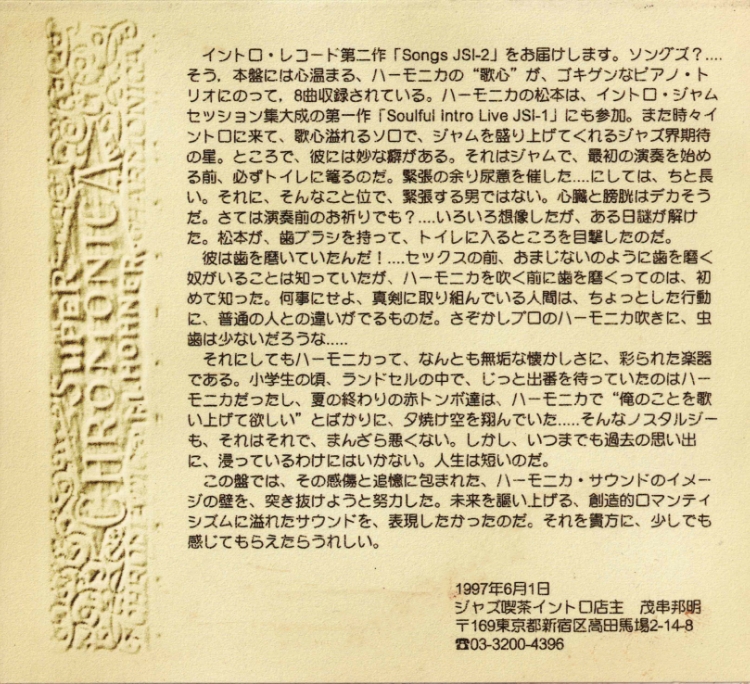 イントロ・レコード第二作「Songs JSI-2」をお届けします。ソングズ?....
そう、本盤には心温まる、ハーモニカの“歌心”が、ゴキゲンなピアノ・ト
リオにのって、8曲収録されている。ハーモニカの松本は、イントロ・ジャム
セッション集大成の第一作「Soulful intro Live JSI-1」にも参加。また時々イ
ントロに来て、歌心溢れるソロで、ジャムを盛り上げてくれるジャズ界期待
の星。ところで、彼には妙な癖がある。それはジャムで、最初の演奏を始め
る前、必ずトイレに篭るのだ。緊張の余り尿意を催した....にしては、ちと長
い。それに、そんなこと位で、緊張する男ではない。心臓と膀胱はデカそう
だ。さては演奏前のお祈りでも?....いろいろ想像したが、ある日謎が解け
た。松本が、歯ブラシを持って、トイレに入るところを目撃したのだ。
彼は歯を磨いていたんだ!....セックスの前、おまじないのように歯を磨く
奴がいることは知っていたが、ハーモニカを吹く前に歯を磨くってのは、初
めて知った。何事にせよ、真剣に取り組んでいる人間は、ちょっとした行動
に、普通の人との違いがでるものだ。さぞかしプロのハーモニカ吹きに、虫
歯は少ないだろうな.....
それにしてもハーモニカって、なんとも無垢な懐かしさに、彩られた楽器
である。小学生の頃、ランドセルの中で、じっと出番を待っていたのはハー
モニカだったし、夏の終わりの赤トンボ達は、ハーモニカで“俺のことを歌
い上げて欲しい”とばかりに、夕焼け空を翔んでいた.....そんなノスタルジー
も、それはそれで、まんざら悪くない。しかし、いつまでも過去の思い出
に、浸っているわけにはいかない。人生は短いのだ。
この盤では、その感傷と追憶に包まれた、ハーモニカ・サウンドのイメー
ジの壁を、突き抜けようと努力した。未来を謳い上げる、創造的ロマンティ
シズムに溢れたサウンドを、表現したかったのだ。それを貴方に、少しでも
感じてもらえたらうれしい。
1997年6月1日
ジャズ喫茶イントロ店主 茂串邦明
〒169東京都新宿区高田馬場2-14-8
☎03-3200-4396
SUPER
CHROMONICA
M.HOHNER